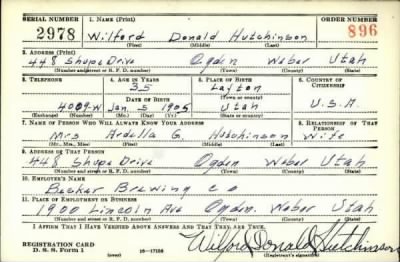 SERIAL NUMBER 1. NAME (Print) ORDER NUMBER
2978 Wilford Donald Hutchinson 896
(First) (Middle) (Last)
2. ADDRESS (Print)
448 Shupe Drive Ogden Weber Utah
(Number and street or R. F. D. number) (Town) (County) (State)
3. TELEPHONE 4. AGE IN YEARS 5. PLACE OF BIRTH 6. COUNTRY OF CITIZENSHIP
35 Layton
DATE OF BIRTH (Town or county)
4009-W Jan. 5 1905 Utah U.S.A.
(Exchange) (Number) (Mo.) (Day) (Yr.) (State or country)
7. NAME OF PERSON WHO WILL ALWAYS KNOW YOUR ADDRESS 8. RELATIONSHIP OF THAT PERSON
Mrs Ardella G. Hutchinson Wife
(Mr., Mrs., Miss) (First) (Middle) (Last)
9. ADDRESS OF THAT PERSON
448 Shupe Drive Ogden Weber Utah
(Number and street or R. F. D. number) (Town) (County) (State)
10. EMPLOYER'S NAME
Becker Brewing Co
11. PLACE OF EMPLOYMENT OR BUSINESS
1900 Lincoln Ave Ogden. Weber Utah
(Number and street or R. F. D. number) (Town) (County) (State)
I AFFIRM THAT I HAVE VERIFIED ABOVE ANSWERS AND THAT THEY ARE TRUE.
REGISTRATION CARD
D. S. S. Form 1 Wilford Donald Hutchinson
(Registrant's signature)